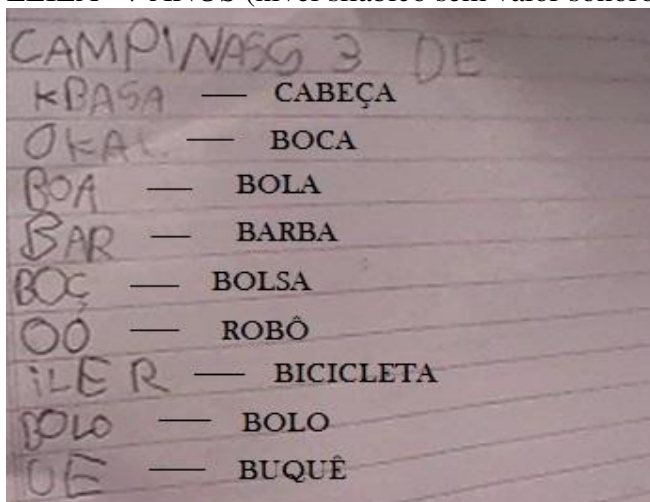 CAMPINAS G 3 DE
KBASA — CABEÇA
OKAL — BOCA
BOA — BOLA
BAR — BARBA
BOÇ — BOLSA
OÔ — ROBÔ
iLE R — BICICLETA
BOLO — BOLO
UE — BUQUÊ